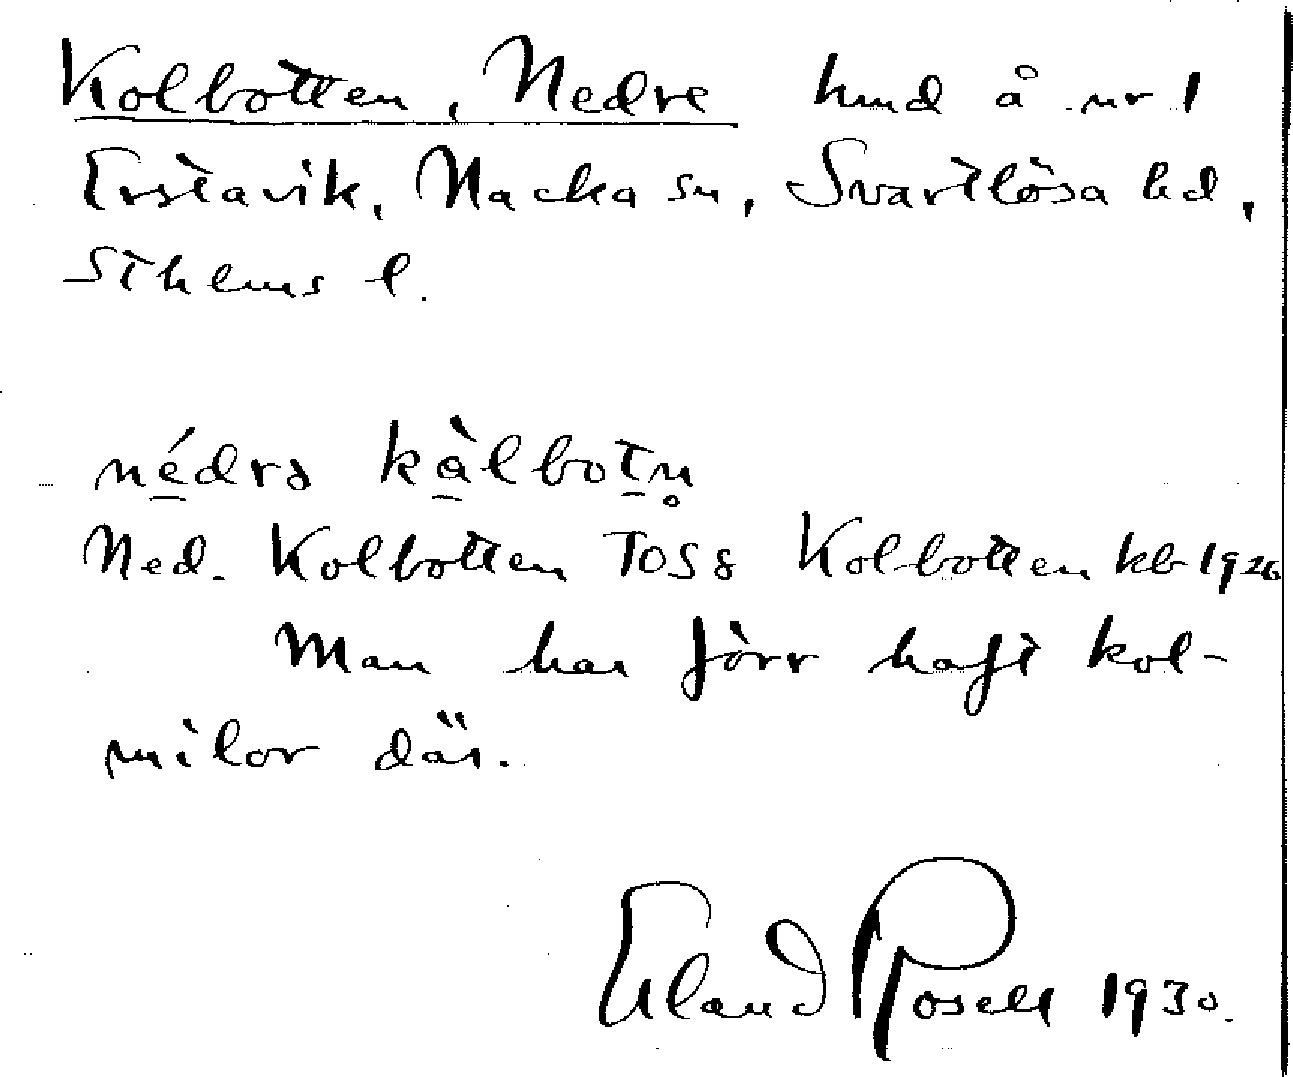 Kolbotten, Nedre hmd å nr 1
Erstavik, Nacka sn, Svartlösa hd,
Sthlms l.
nédrə kålbotn̥
Ned. Kolbotten TOS8 Kolbotten kb 1926
Man har förr haft kol-
milor där.
Erland Rosell 1930.